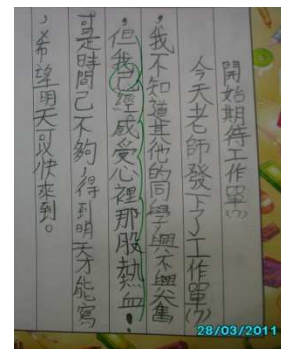 開始期待工作單(7)
今天老師發下了工作單(7)
,我不知道其他的同學興不興奮
,但我已經感受心裡那股熱血!
可是時間己不夠,得到明天才能寫
,希望明天可以快來到。
28/03/2011